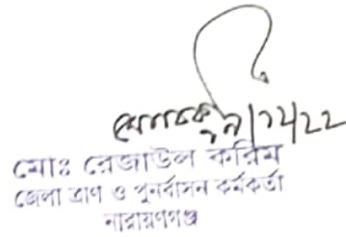 মোঃ রেজাউল করিম
জেলা ত্রাণ ও পুনর্বাসন কর্মকর্তা
নারায়ণগঞ্জ